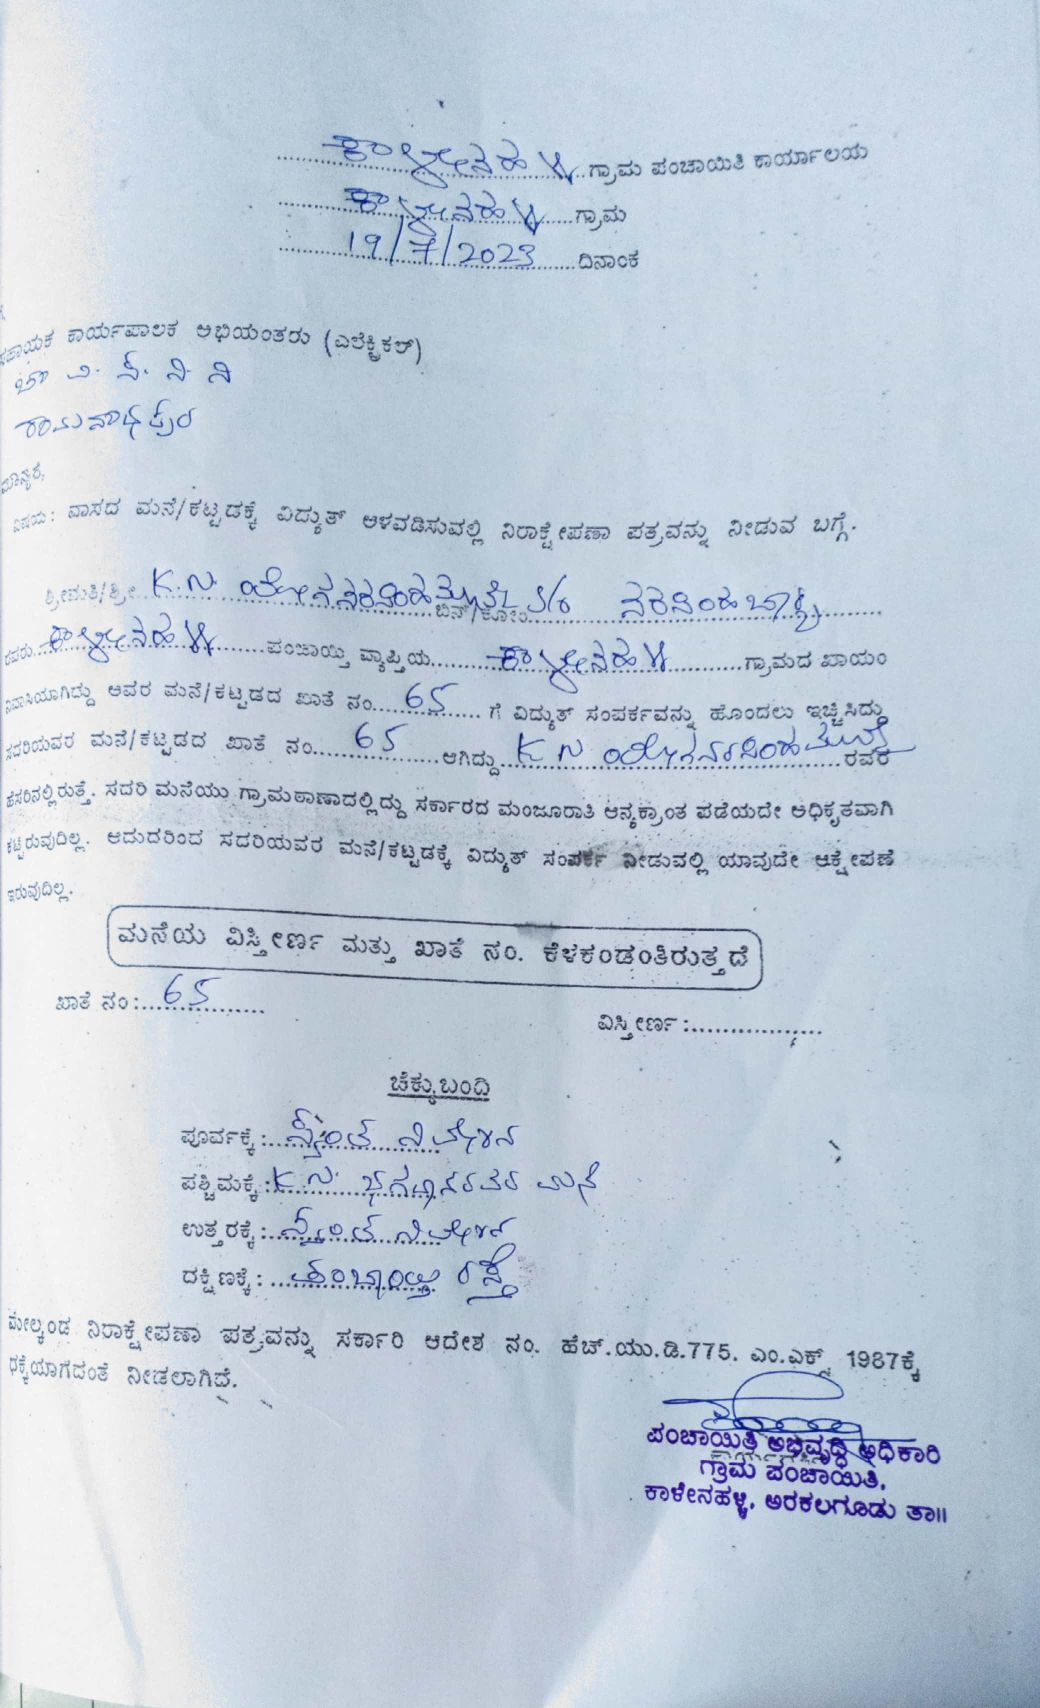 ಕಾಳೇನಹಳ್ಳಿ ಗ್ರಾಮ ಪಂಚಾಯಿತಿ ಕಾರ್ಯಾಲಯ
ಕಾಳೇನಹಳ್ಳಿ ಗ್ರಾಮ
19/7/2023 ದಿನಾಂಕ
ಸಹಾಯಕ ಕಾರ್ಯಪಾಲಕ ಅಭಿಯಂತರು (ಎಲೆಕ್ಟ್ರಿಕಲ್)
ರಾಮನಾಥಪುರ
ಮಾನ್ಯರೆ,
ವಿಷಯ: ವಾಸದ ಮನೆ/ಕಟ್ಟಡಕ್ಕೆ ವಿದ್ಯುತ್ ಅಳವಡಿಸುವಲ್ಲಿ ನಿರಾಕ್ಷೇಪಣಾ ಪತ್ರವನ್ನು ನೀಡುವ ಬಗ್ಗೆ.
ಶ್ರೀಮತಿ/ಶ್ರೀ K.N. ಯೋಗನರಸಿಂಹಮೂರ್ತಿ ಬಿನ್/ಕೋಂ S/o ನರಸಿಂಹ
ರವರು ಕಾಳೇನಹಳ್ಳಿ ಪಂಚಾಯ್ತಿ ವ್ಯಾಪ್ತಿಯ ಕಾಳೇನಹಳ್ಳಿ ಗ್ರಾಮದ ಖಾಯಂ
ನಿವಾಸಿಯಾಗಿದ್ದು ಅವರ ಮನೆ/ಕಟ್ಟಡದ ಖಾತೆ ನಂ. 65 ಗೆ ವಿದ್ಯುತ್ ಸಂಪರ್ಕವನ್ನು ಹೊಂದಲು ಇಚ್ಚಿಸಿದ್ದು
ಸದರಿಯವರ ಮನೆ/ಕಟ್ಟಡದ ಖಾತೆ ನಂ. 65 ಆಗಿದ್ದು K N ಯೋಗನರಸಿಂಹಮೂರ್ತಿ ರವರ
ಹೆಸರಿನಲ್ಲಿರುತ್ತೆ. ಸದರಿ ಮನೆಯು ಗ್ರಾಮಠಾಣಾದಲ್ಲಿದ್ದು ಸರ್ಕಾರದ ಮಂಜೂರಾತಿ ಅನ್ಯಕ್ರಾಂತ ಪಡೆಯದೇ ಅಧಿಕೃತವಾಗಿ
ಕಟ್ಟಿರುವುದಿಲ್ಲ. ಆದುದರಿಂದ ಸದರಿಯವರ ಮನೆ/ಕಟ್ಟಡಕ್ಕೆ ವಿದ್ಯುತ್ ಸಂಪರ್ಕ ನೀಡುವಲ್ಲಿ ಯಾವುದೇ ಆಕ್ಷೇಪಣೆ
ಇರುವುದಿಲ್ಲ.
ಮನೆಯ ವಿಸ್ತೀರ್ಣ ಮತ್ತು ಖಾತೆ ನಂ. ಕೆಳಕಂಡಂತಿರುತ್ತದೆ
ಖಾತೆ ನಂ: 65
ವಿಸ್ತೀರ್ಣ:
ಚೆಕ್ಕುಬಂದಿ
ಪೂರ್ವಕ್ಕೆ: ಸ್ವಂತ ನಿವೇಶನ
ಪಶ್ಚಿಮಕ್ಕೆ: K.N. ಮನೆ
ಉತ್ತರಕ್ಕೆ: ಸ್ವಂತ ನಿವೇಶನ
ದಕ್ಷಿಣಕ್ಕೆ: ಪಂಚಾಯ್ತಿ ರಸ್ತೆ
ಮೇಲ್ಕಂಡ ನಿರಾಕ್ಷೇಪಣಾ ಪತ್ರವನ್ನು ಸರ್ಕಾರಿ ಆದೇಶ ನಂ. ಹೆಚ್.ಯು.ಡಿ.775. ಎಂ.ಎಕ್ಸ್ 1987ಕ್ಕೆ
ಧಕ್ಕೆಯಾಗದಂತೆ ನೀಡಲಾಗಿದೆ.
ಪಂಚಾಯಿತಿ ಅಭಿವೃದ್ಧಿ ಅಧಿಕಾರಿ
ಗ್ರಾಮ ಪಂಚಾಯಿತಿ,
ಕಾಳೇನಹಳ್ಳಿ, ಅರಕಲಗೂಡು ತಾ||